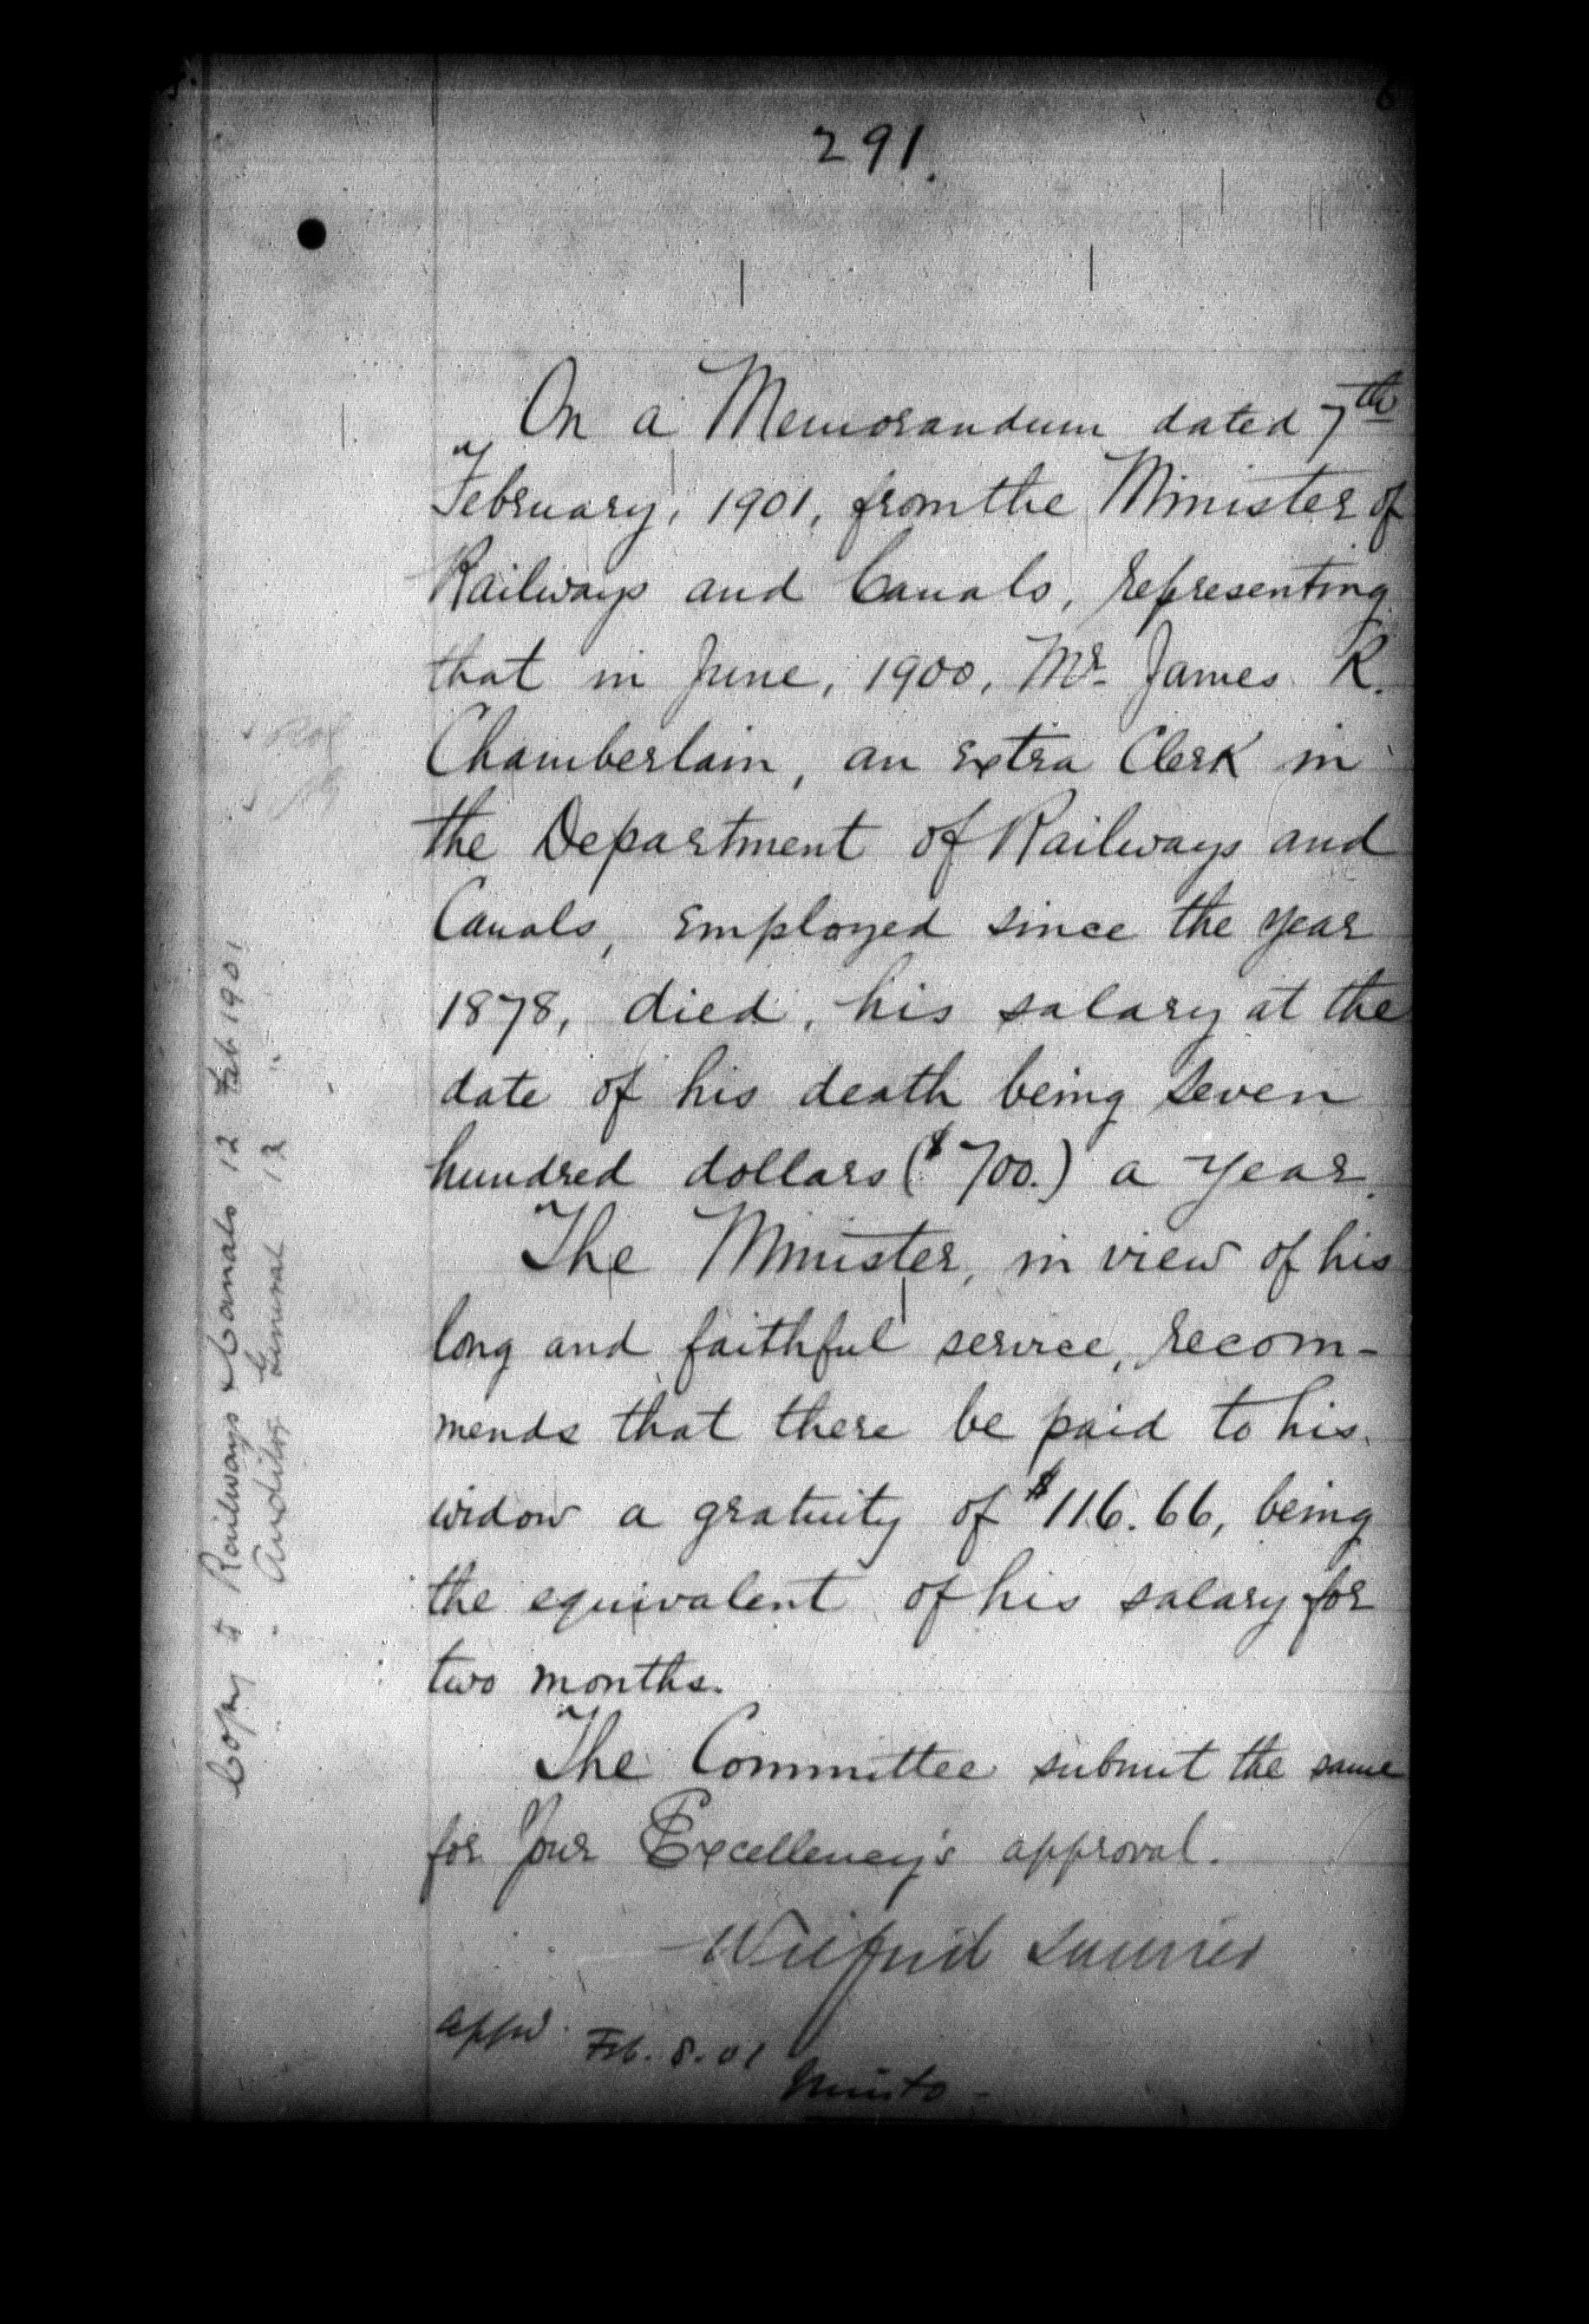 291.
On a Memorandum dated 7th
February, 1901, from the Minister of
Railways and Canals, representing
that in June, 1900, Mr. James R.
Chamberlain, an extra Clerk in
the Department of Railways and
Canals, employed since the year
1878, died, his salary at the
date of his death being seven
hundred dollars ($700.) a year.
The Minister, in view of his
long and faithful service, recom-
mends that there be paid to his
widow a gratuity of $116.66, being
the equivalent of his salary for
two months.
The Committee submit the same
for Your Excellency's approval.
Wilfrid Laurier
appd. Feb. 8. 01
Minto
Copy to Railways & Canals 12 Feb 1901
" " Auditor General 12 "